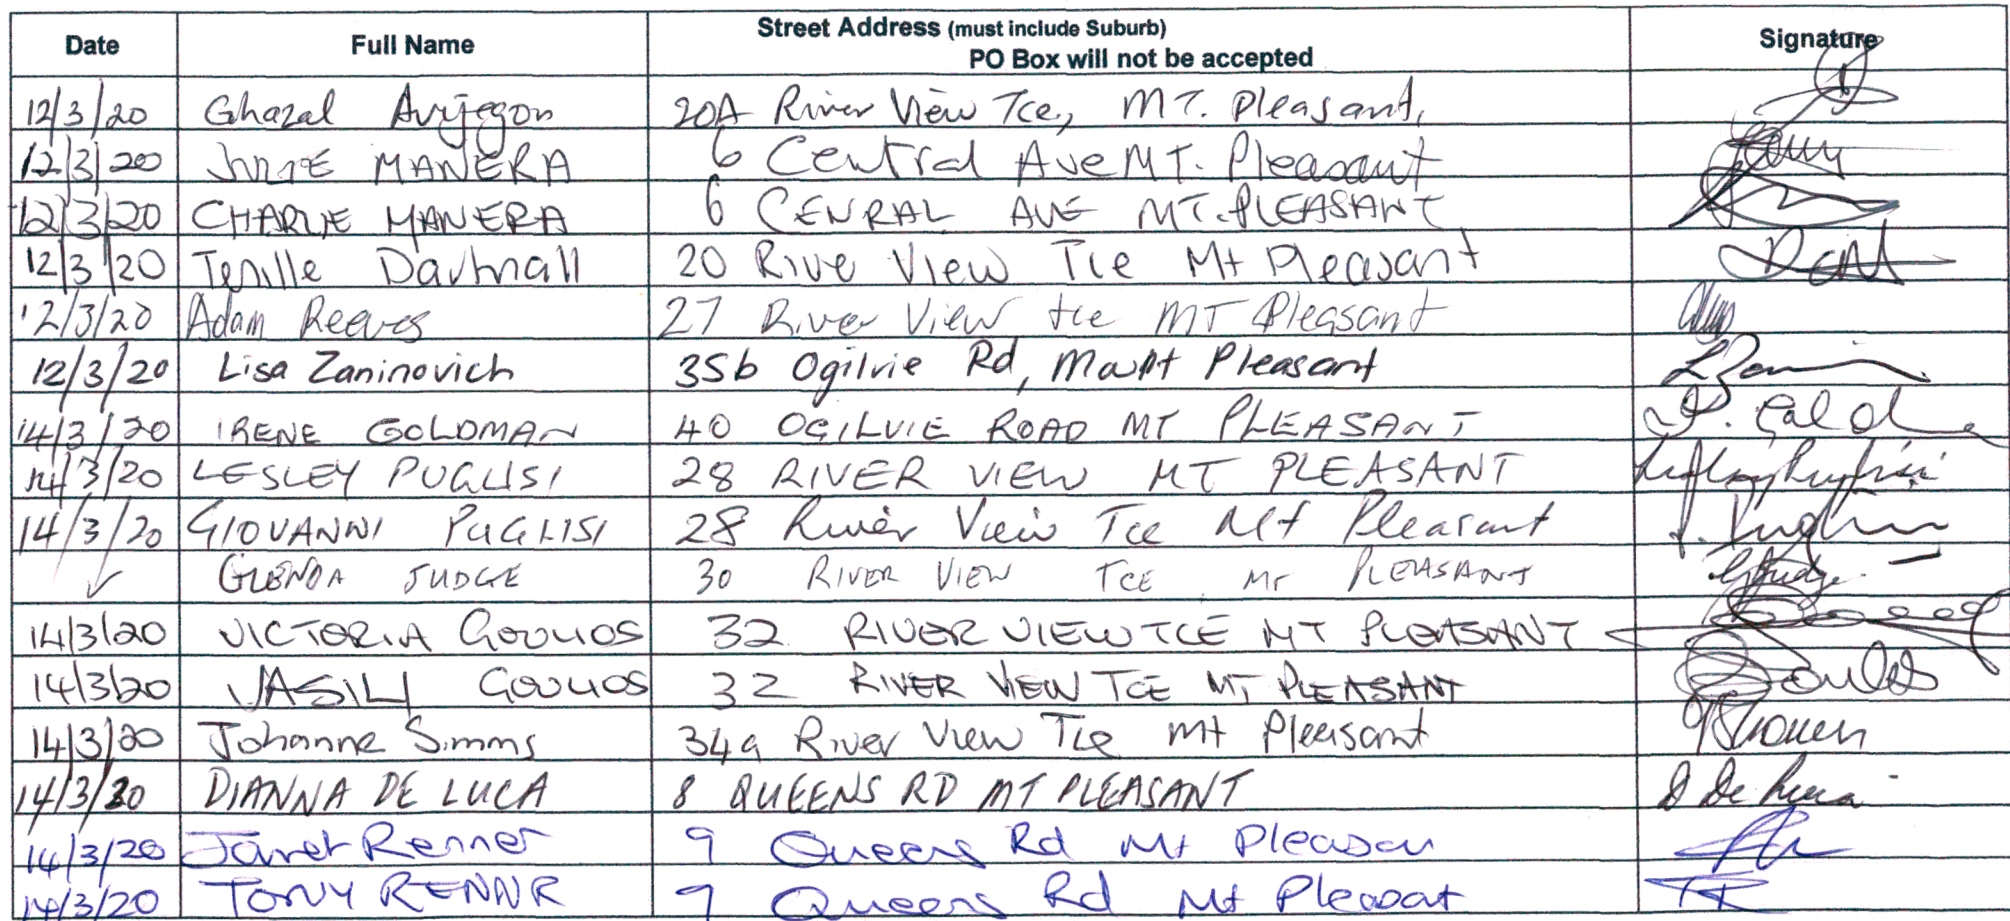 Date Full Name Street Address (must include Suburb) Signature
PO Box will not be accepted
12/3/20 Ghazal Avijegon 20A River View Tce, MT. Pleasant,
12/3/20 JULIE MANERA 6 Central Ave MT. Pleasant
12/3/20 CHARLIE MANERA 6 CENRAL AVE MT. PLEASANT
12/3/20 Tenille Dartnall 20 Rive View Tce Mt Pleasant
12/3/20 Adam Reeves 27 River View tce MT Pleasant
12/3/20 Lisa Zaninovich 35b Ogilvie Rd, Mount Pleasant L Zani
14/3/20 IRENE GOLDMAN 40 OGILVIE ROAD MT PLEASANT I. Gold
14/3/20 LESLEY PUGLISI 28 RIVER VIEW MT PLEASANT Lesley Puglisi
14/3/20 GIOVANNI PUGLISI 28 River View Tce Mt Pleasant
✓ GLENDA JUDGE 30 RIVER VIEW TCE MT PLEASANT GJudge
14/3/20 VICTORIA GOULIOS 32 RIVER VIEW TCE MT PLEASANT
14/3/20 VASILI GOULIOS 32 RIVER VIEW TCE MT PLEASANT
14/3/20 Johanne Simms 34a River View Tce Mt Pleasant
14/3/20 DIANNA DE LUCA 8 QUEENS RD MT PLEASANT D De Luca
14/3/20 Janet Renner 9 Queens Rd Mt Pleasan
14/3/20 TONY RENNR 9 Queens Rd Mt Pleasat TR